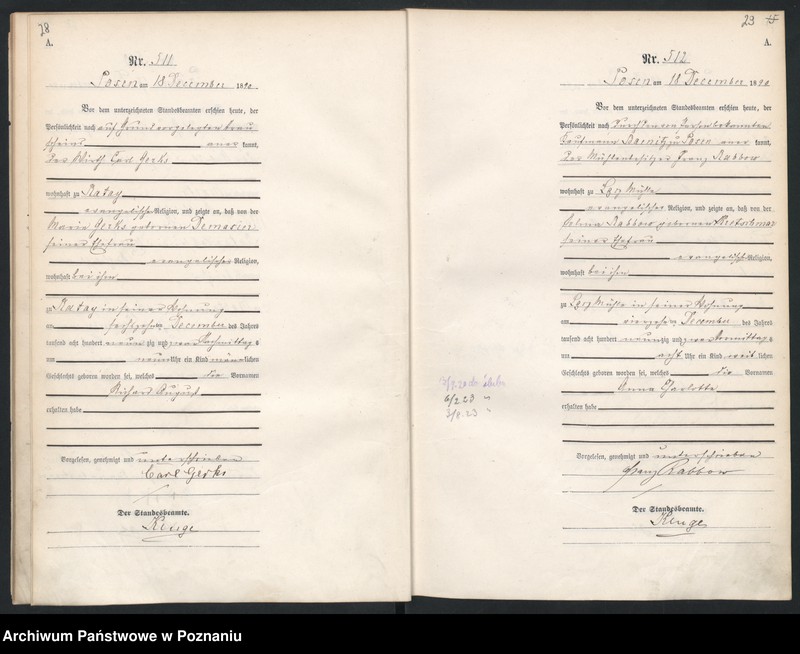 28
A.
Nr. 511
Posen am 18 December 1890.
Vor dem unterzeichneten Standesbeamten erschien heute, der
Persönlichkeit nach auf Grund vorgelegten Trau
scheins aner kannt,
der Wirth Carl Gerks
wohnhaft zu Ratay
evangelischer Religion, und zeigte an, daß von der
Maria Gerks geborenen
seiner Ehefrau
evangelischer Religion,
wohnhaft bei ihm
zu Ratay in seiner Wohnung
am sechszehn ten December des Jahres
tausend acht hundert neunzig und zwar Nachmittag s
um neun Uhr ein Kind männlichen
Geschlechts geboren worden sei, welches die Vornamen
Richard August
erhalten habe
Vorgelesen, genehmigt und unterschrieben
Carl Gerks
Der Standesbeamte.
29
A.
Nr. 512
Posen am 18 December 1890
Vor dem unterzeichneten Standesbeamten erschien heute, der
Persönlichkeit nach durch den von Person bekannten
Kaufmann zu Posen aner kannt,
der Mühlenbesitzer Franz Rabbow
wohnhaft zu Mühle
evangelischer Religion, und zeigte an, daß von der
Rabbow geborenen Kretschmar
seiner Ehefrau
evangelischer Religion,
wohnhaft bei ihm
zu Mühle in seiner Wohnung
am vierzehn ten December des Jahres
tausend acht hundert neunzig und zwar Vormittag s
um acht Uhr ein Kind weiblichen
Geschlechts geboren worden sei, welches die Vornamen
Anna Charlotte
erhalten habe
Vorgelesen, genehmigt und unterschrieben
Franz Rabbow
Der Standesbeamte.
Archiwum Państwowe w Poznaniu